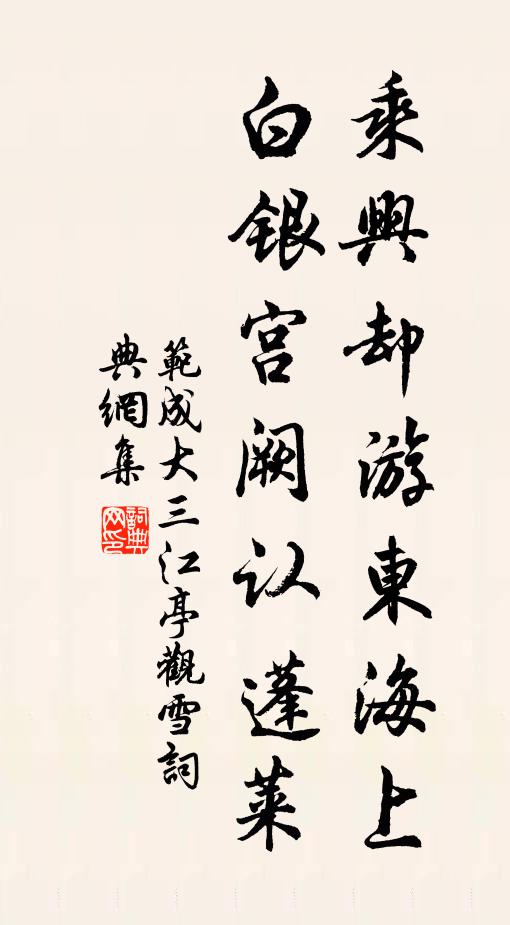 乘興却游東海上
白银宫阙认蓬萊
範成大三江亭觀雪詞
典網集
詞典
网印